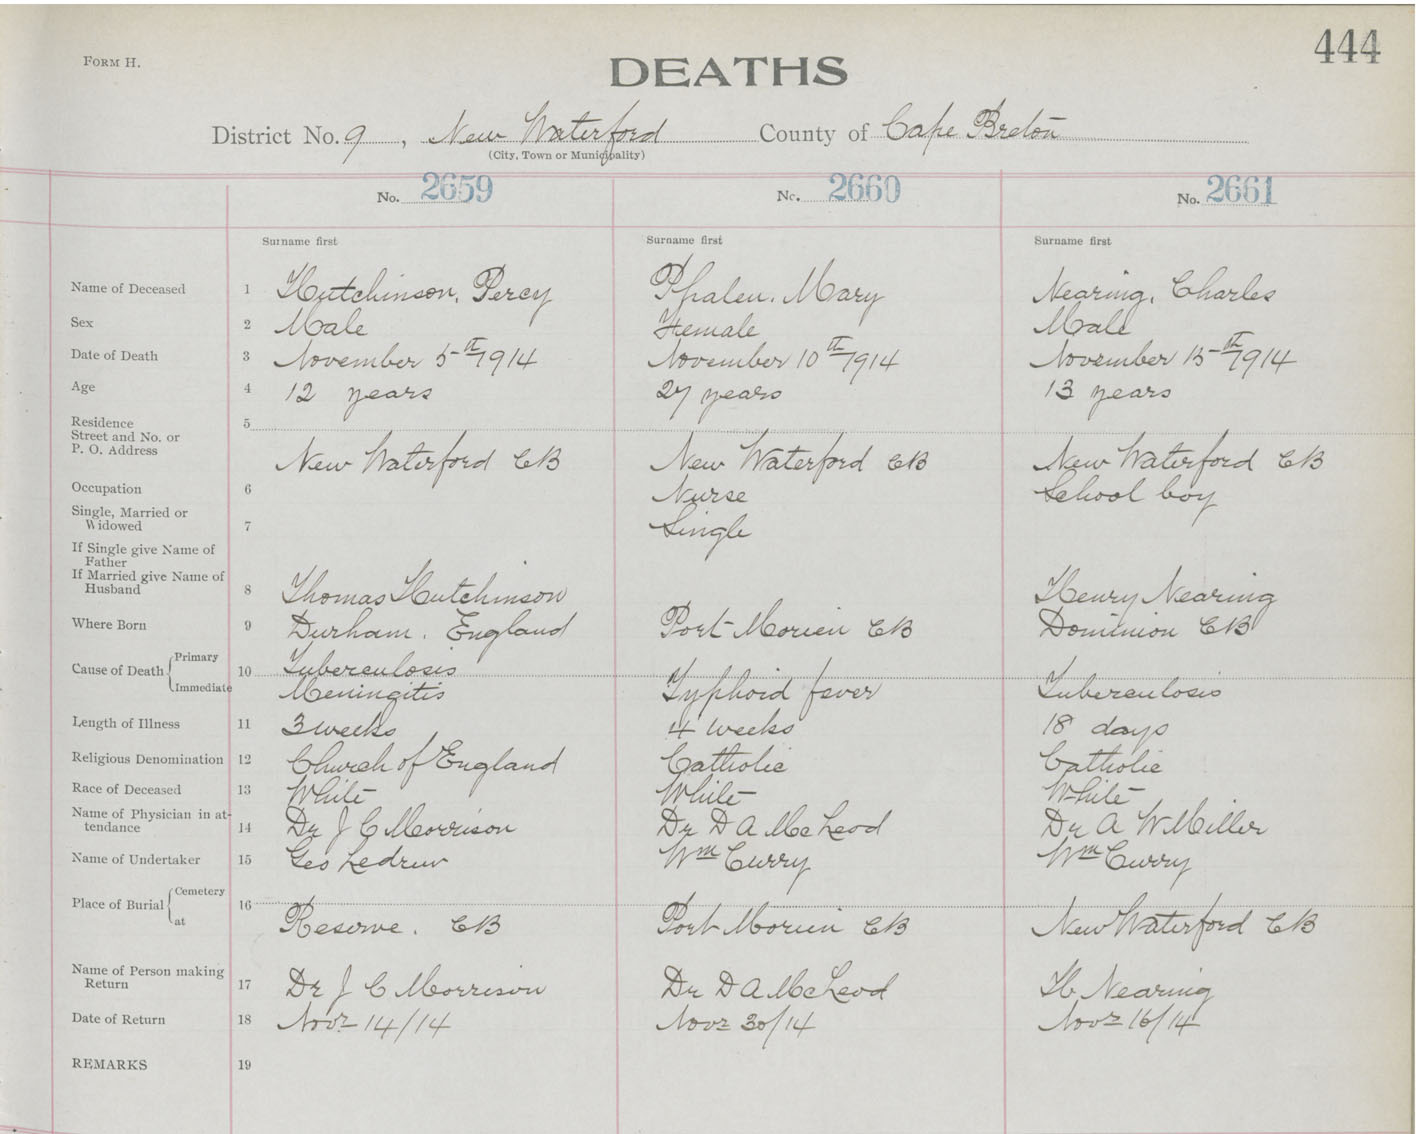 444
FORM H.
DEATHS
District No. 9, New Waterford County of Cape Breton
(City, Town or Municipality)
No. 2659 No. 2660 No. 2661
Surname first Surname first Surname first
Name of Deceased 1 Hutchinson, Percy Phalen, Mary Nearing, Charles
Sex 2 Male Female Male
Date of Death 3 November 5th 1914 November 10th 1914 November 15th 1914
Age 4 12 years 27 years 13 years
Residence 5
Street and No. or
P. O. Address New Waterford CB New Waterford CB New Waterford CB
Occupation 6 Nurse School boy
Single, Married or
Widowed 7 Single
If Single give Name of
Father
If Married give Name of
Husband 8 Thomas Hutchinson Henry Nearing
Where Born 9 Durham. England Port Morien CB Dominion CB
Cause of Death Primary 10 Tuberculosis
Immediate Meningitis Typhoid fever Tuberculosis
Length of Illness 11 3 weeks 4 weeks 18 days
Religious Denomination 12 Church of England Catholic Catholic
Race of Deceased 13 White White White
Name of Physician in at-
tendance 14 Dr J C Morrison Dr D A McLeod Dr A W Miller
Name of Undertaker 15 Geo Ledrew Wm Curry Wm Curry
Place of Burial Cemetery 16
at Reserve. CB Port Morien CB New Waterford CB
Name of Person making
Return 17 Dr J C Morrison Dr D A McLeod H Nearing
Date of Return 18 Novr 14/14 Novr 30/14 Novr 16/14
REMARKS 19